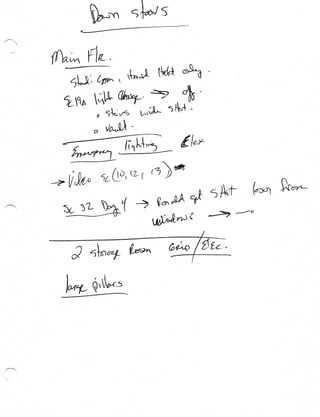 Down stairs
Main Flr.
Stadi Cam, Hand Held only.
off.
• Stairs wide Shot.
• Vault.
Emergency lighting Elex
→ Video Sc (10, 12, 13)
Sc 32 Day 4 → Shot from
windows →
2 Storage Room Grip/Elec.
large pillars